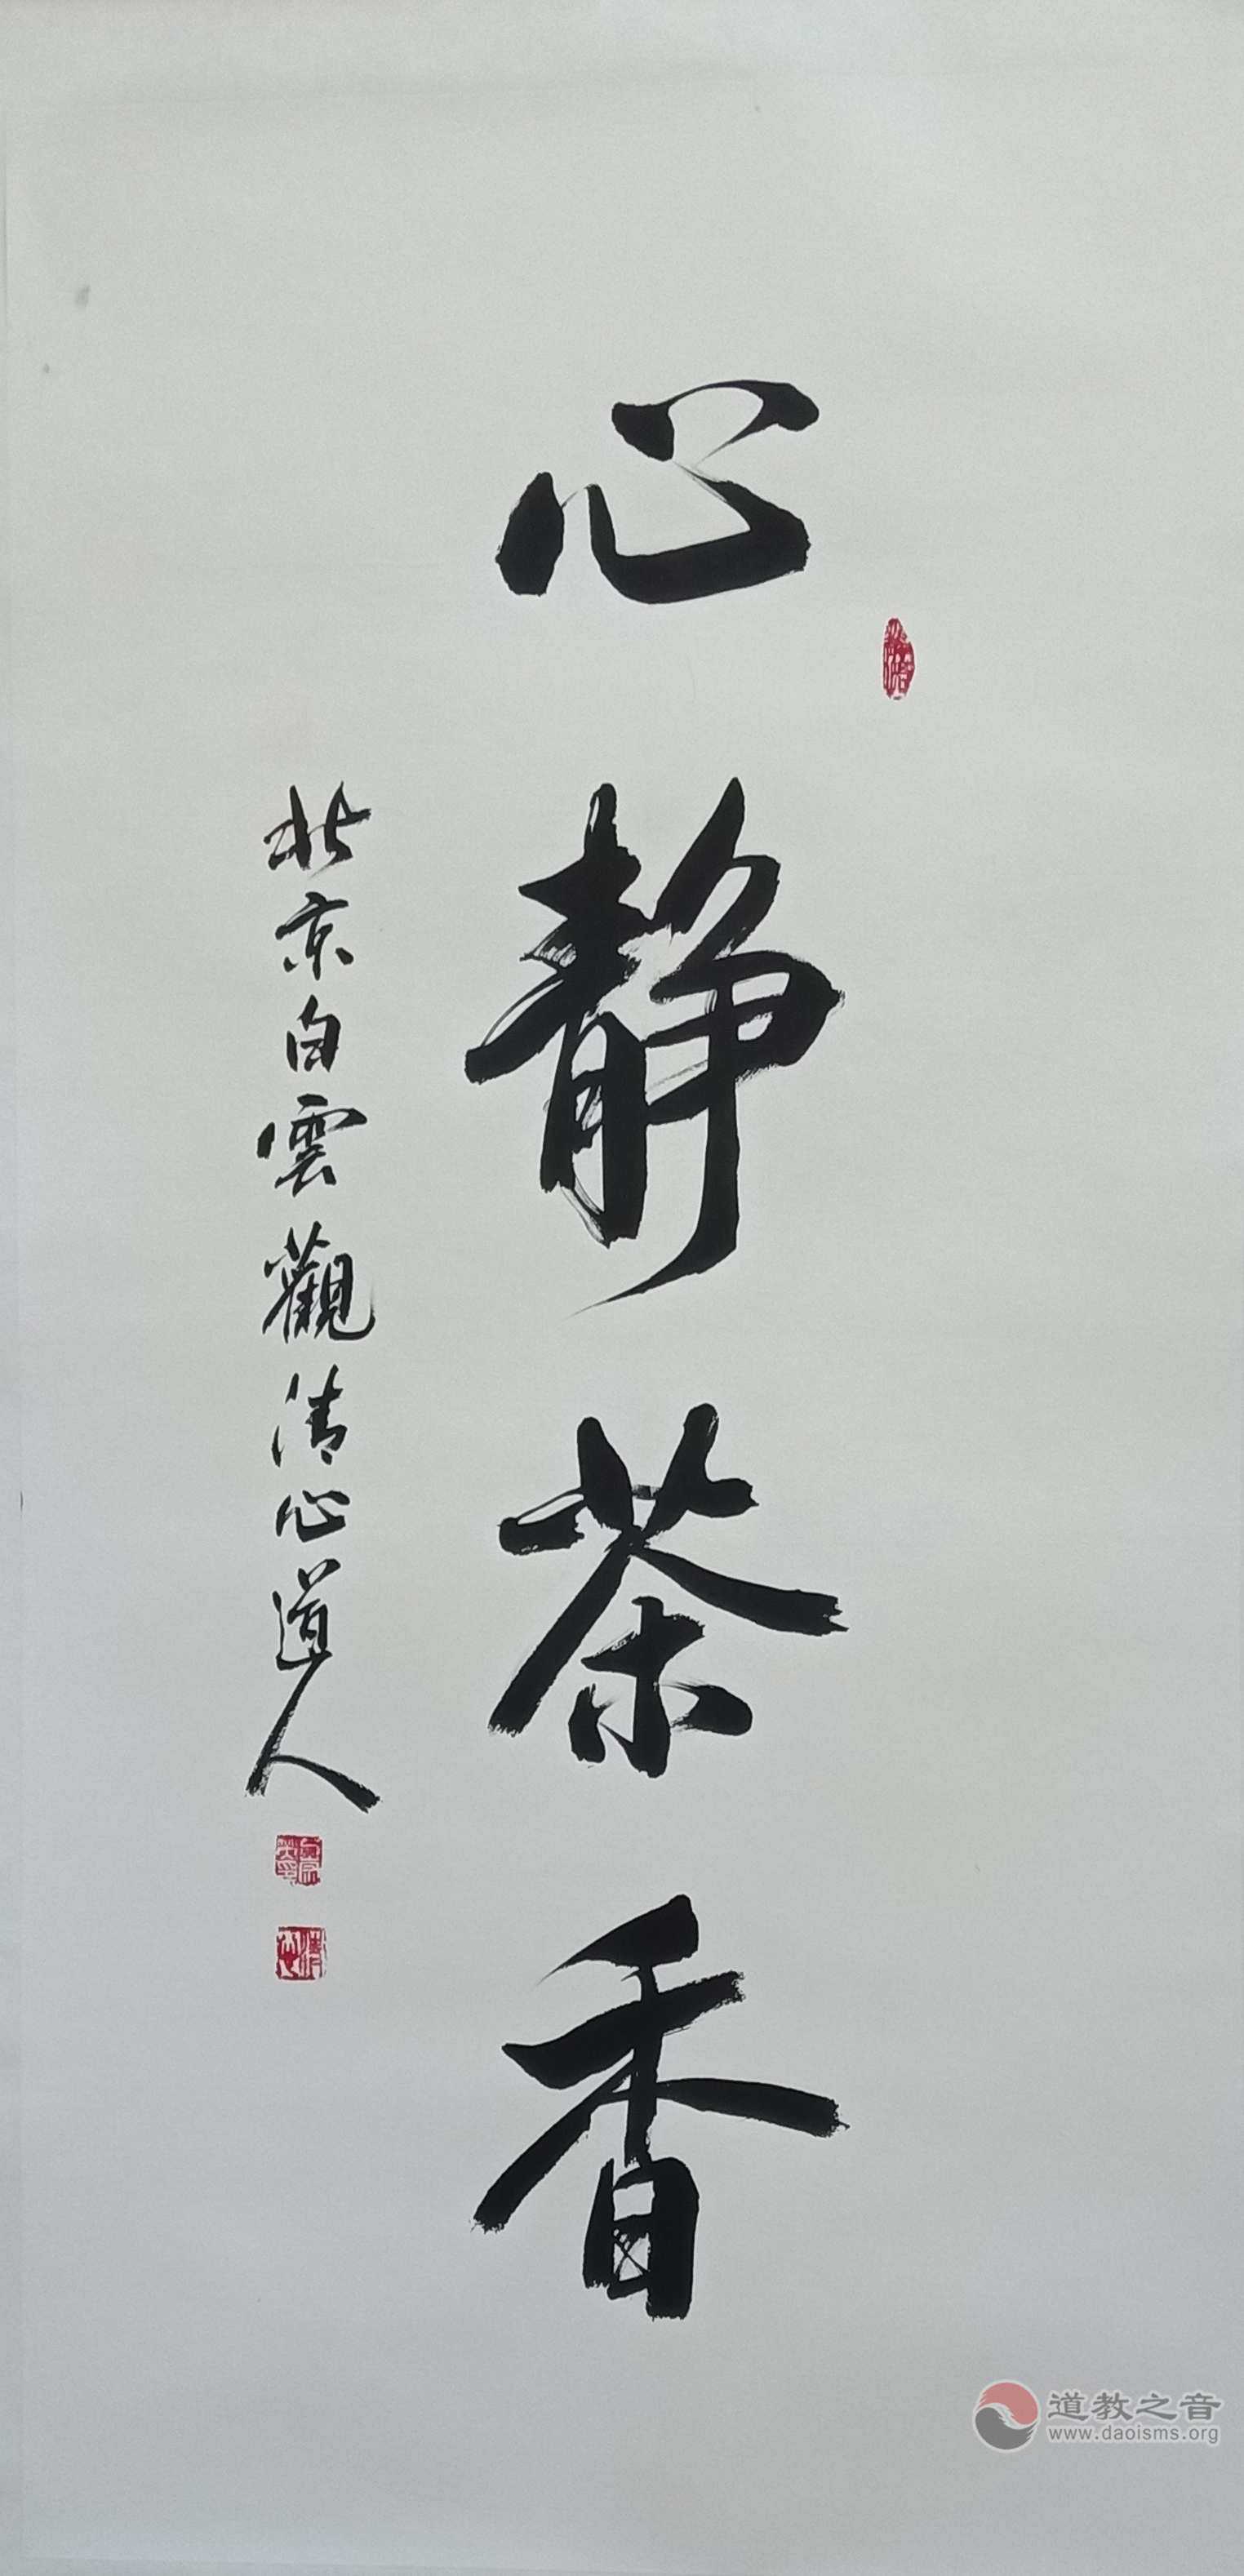 心静茶香
北京白雲觀清心道人
道教之音
www.daoisms.org